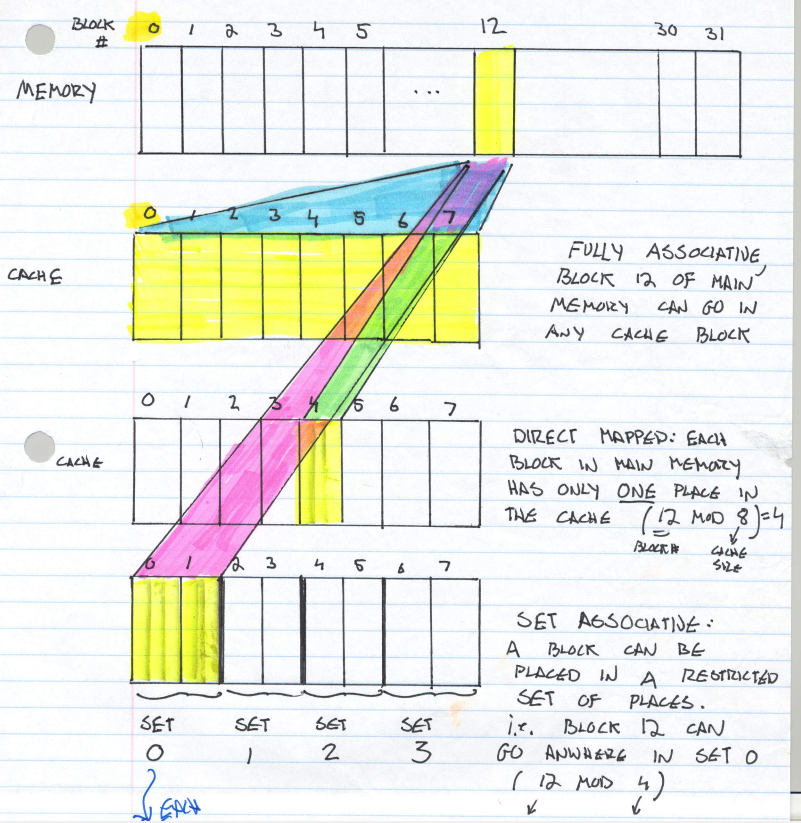 BLOCK
#
0 1 2 3 4 5 12 30 31
MEMORY
...
0 1 2 3 4 5 6 7
CACHE
FULLY ASSOCIATIVE,
BLOCK 12 OF MAIN
MEMORY CAN GO IN
ANY CACHE BLOCK
0 1 2 3 4 5 6 7
CACHE
DIRECT MAPPED: EACH
BLOCK IN MAIN MEMORY
HAS ONLY ONE PLACE IN
THE CACHE (12 MOD 8)=4
BLOCK# CACHE
SIZE
0 1 2 3 4 5 6 7
SET ASSOCIATIVE:
A BLOCK CAN BE
PLACED IN A RESTRICTED
SET OF PLACES.
i.e. BLOCK 12 CAN
GO ANWHERE IN SET 0
(12 MOD 4)
SET SET SET SET
0 1 2 3
EACH